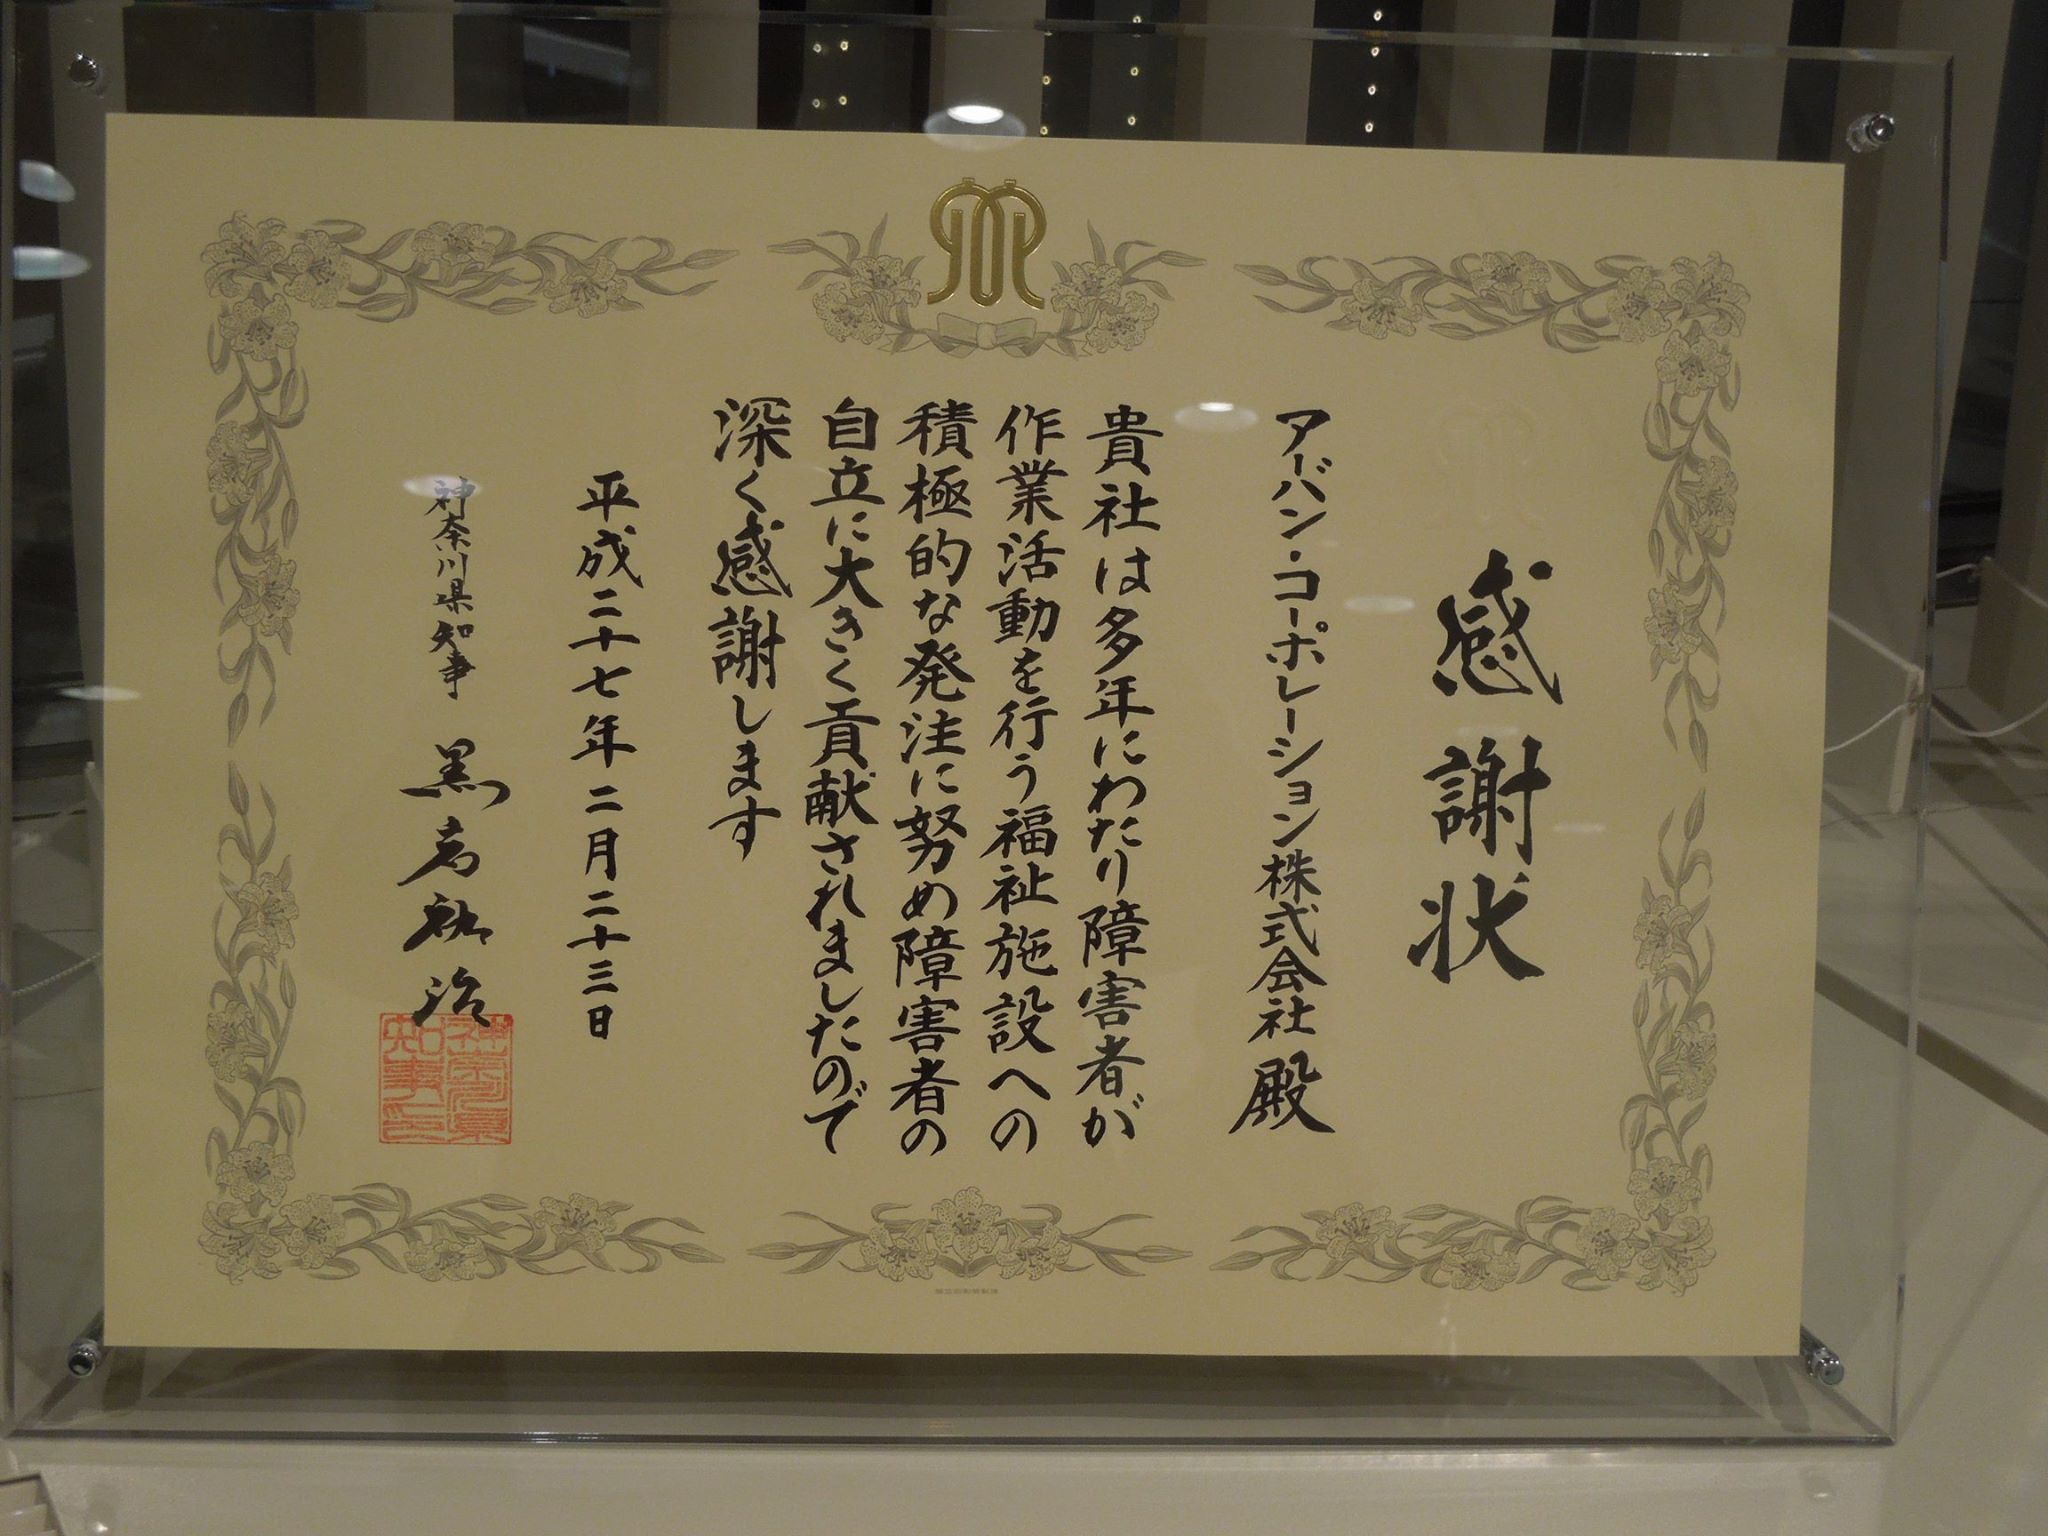 感謝状
アーバン・コーポレーション株式会社 殿
貴社は多年にわたり障害者が
作業活動を行う福祉施設への
積極的な発注に努め障害者の
自立に大きく貢献されましたので
深く感謝します
平成二十七年二月二十三日
神奈川県知事 黒岩祐治
神奈川県
知事之印